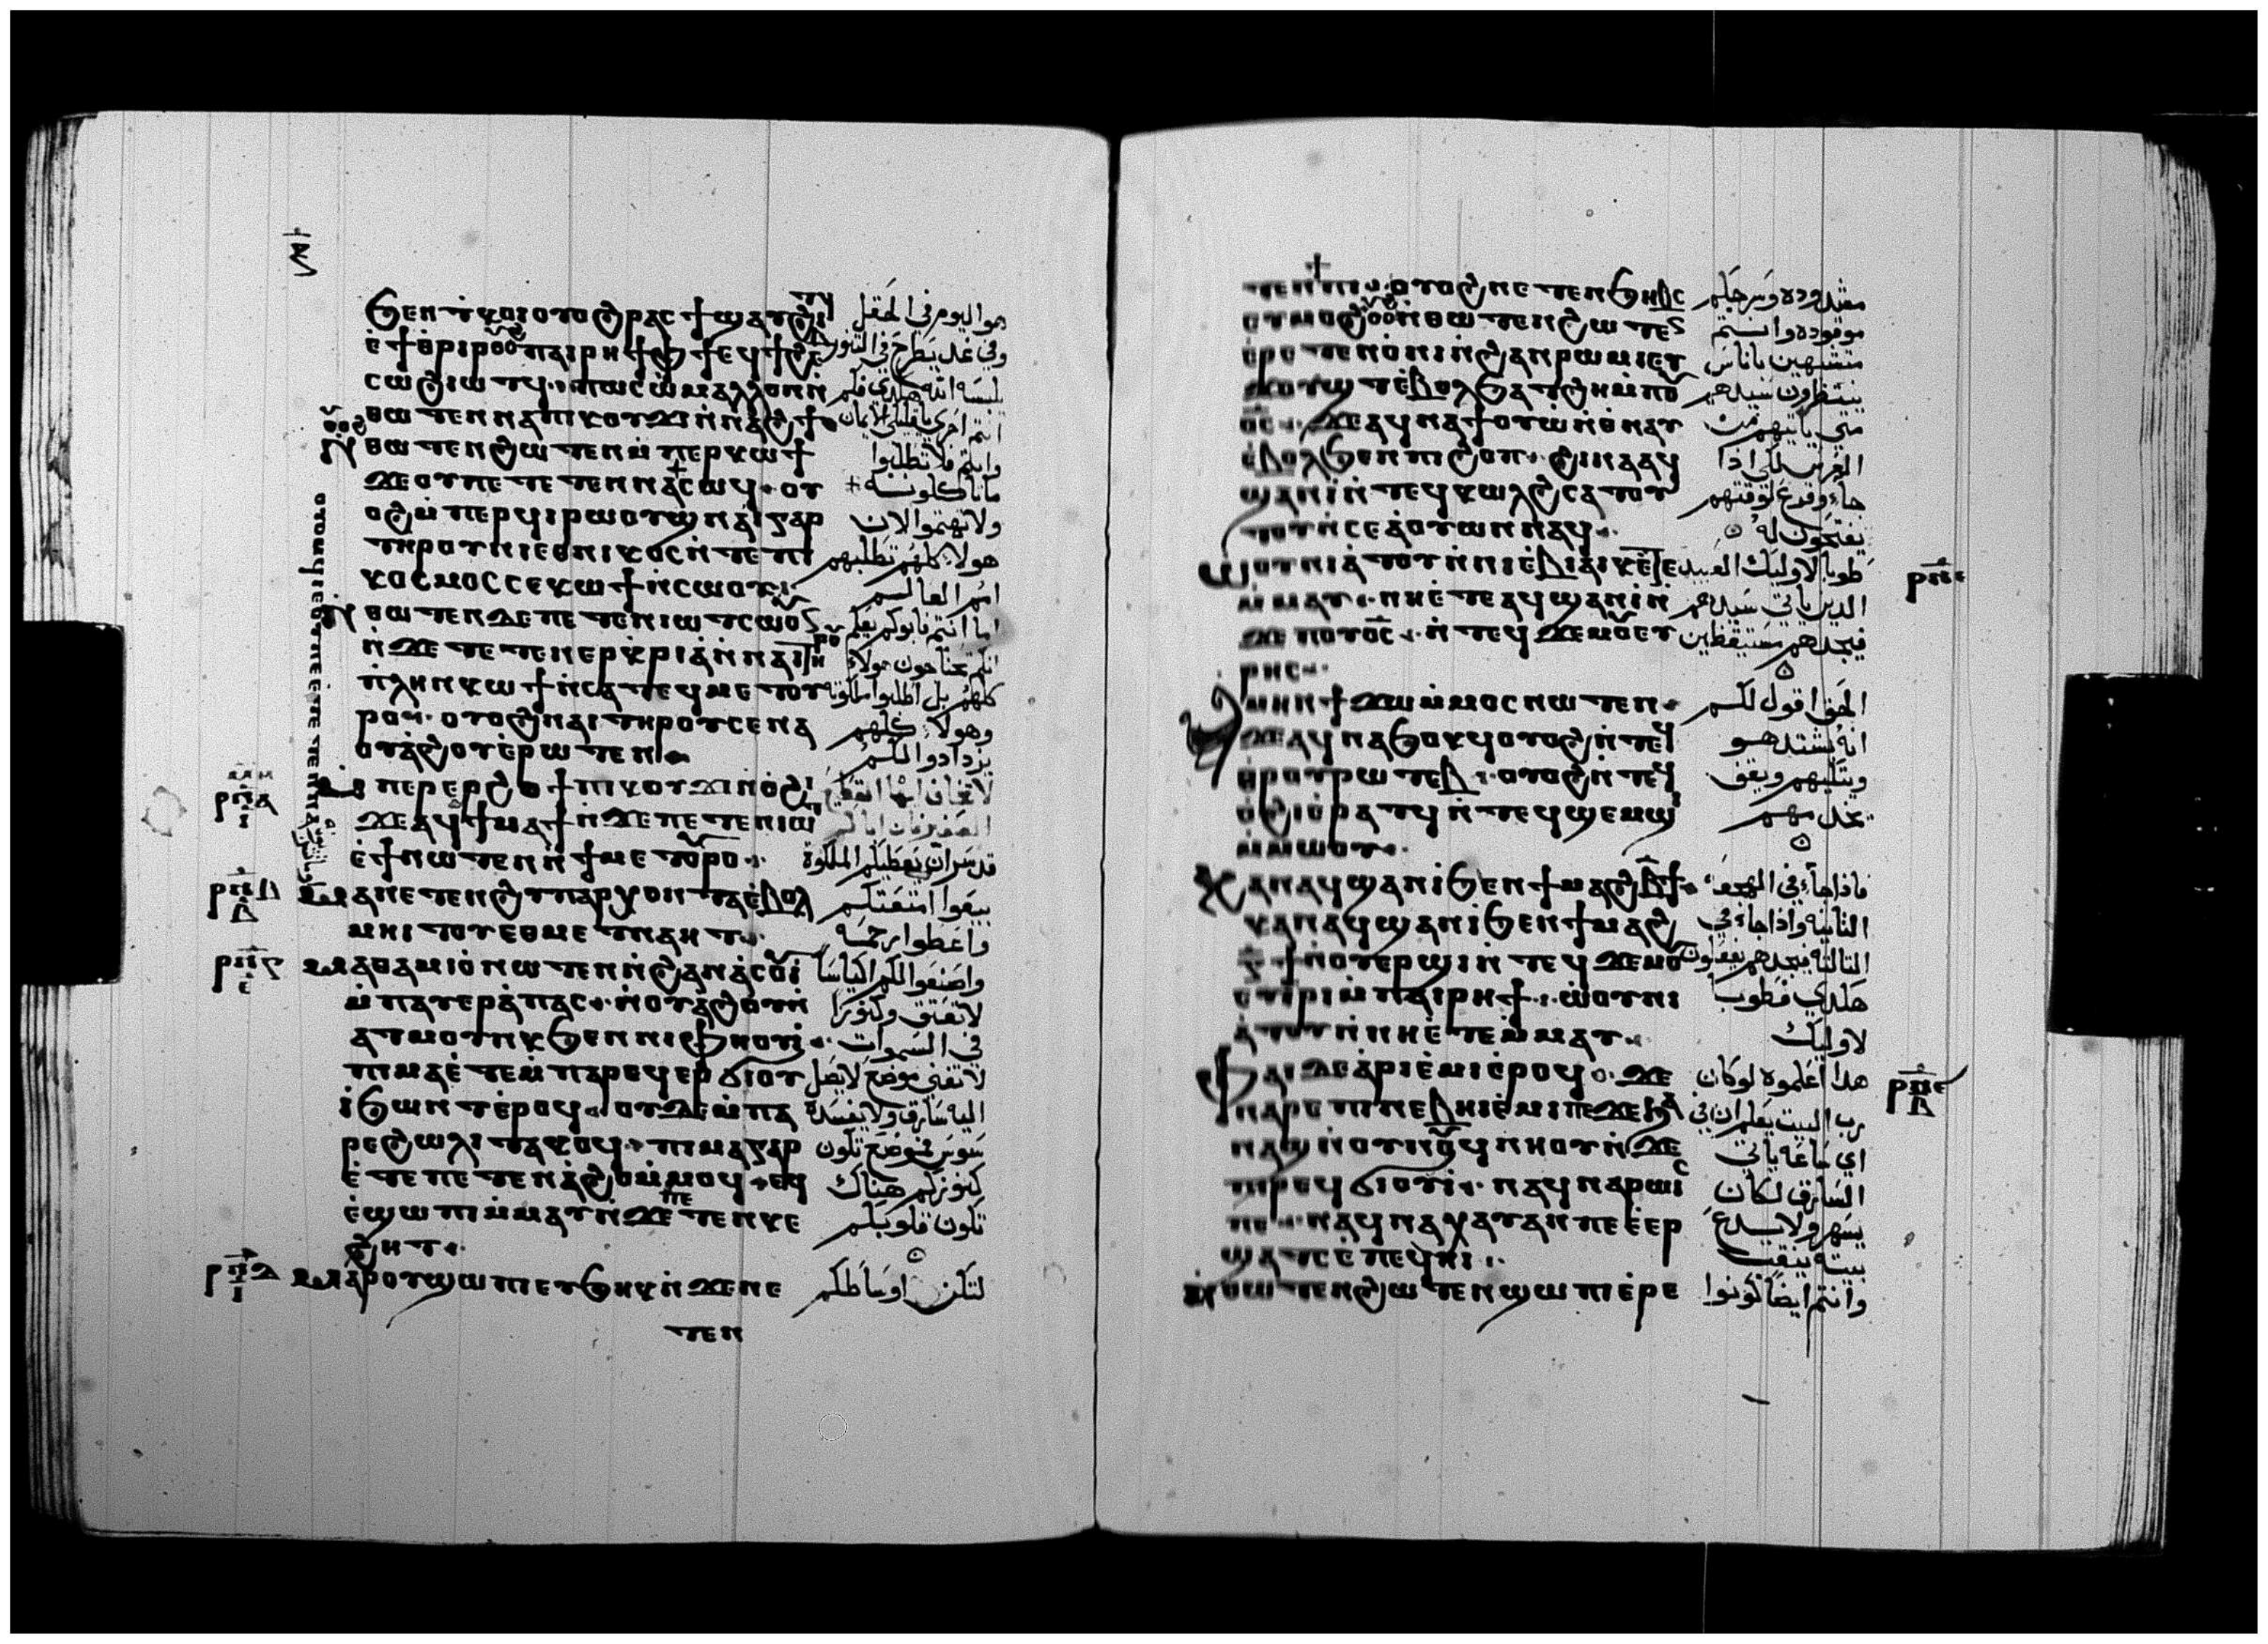 ϧⲉⲛⲧⲕⲟⲓⲟⲩⲟϩⲣⲁⲥϯϣⲁⲩϩⲓⲧϥ
ⲉ̀ϯⲑⲣⲓⲣⲡⲁⲓⲣⲏϯⲫϯϥϯϩⲉ
ⲥⲱϩⲓⲱⲧϥ ⲡⲱⲥⲱ ⲙⲁⲗⲗⲟⲛⲛ̀
ⲑⲱⲧⲉⲛⲛⲁⲡⲓⲕⲟⲩϫⲓⲛ̀ⲛⲁϩϯ
ⲛ̀ⲑⲱⲧⲉⲛϩⲱⲧⲉⲛⲙ̀ⲡⲉⲣⲕⲱϯ
ϫⲉⲟⲩⲡⲉⲧⲉⲧⲉⲛⲛⲁⲥⲱϥ ⲟⲩ
ⲟϩⲙ̀ⲡⲉⲣϥⲓⲣⲱⲟⲩϣⲛⲁⲓⲅⲁⲣ
ⲧⲏⲣⲟⲩⲛⲓⲉⲑⲛⲓⲕⲟⲥⲛ̀ⲧⲉⲡⲓ
ⲕⲟⲥⲙⲟⲥⲥⲉⲕⲱϯⲛ̀ⲥⲱⲟⲩ
ⲛ̀ⲑⲱⲧⲉⲛⲇⲉⲡⲉⲧⲉⲛⲓⲱⲧⲥⲱⲟⲩ
ⲛ̀ϫⲉⲧⲉⲧⲉⲛⲉⲣⲭⲣⲓⲁ̀ⲛ̀ⲛⲁⲓⲧⲏⲣⲟⲩ
ⲡⲗⲏⲛⲕⲱϯⲛ̀ⲥⲁⲧⲉϥⲙⲉⲧⲟⲩ
ⲣⲟ ⲟⲩⲟϩⲛⲁⲓⲧⲏⲣⲟⲩⲥⲉⲛⲁ
ⲟⲩⲁ̀ϩⲟⲩⲉ̀ⲣⲱⲧⲉⲛ
ⲙ̀ⲡⲉⲣⲉⲣϩⲟϯⲡⲓⲕⲟⲩϫⲓⲛ̀ⲟϩⲓ
ϫⲉⲁϥϯⲙⲁϯⲛ̀ϫⲉⲡⲉⲧⲉⲛⲓⲱⲧ
ⲉ̀ϯⲛⲱⲧⲉⲛⲛ̀ϯⲙⲉⲧⲟⲩⲣⲟ
ⲙⲁⲛⲉⲧⲉⲛϩⲩⲡⲁⲣⲭⲟⲛⲧⲁⲉ̀ⲃⲟⲗ
ⲙⲏⲓⲧⲟⲩⲉⲑⲙⲉⲧⲛⲁⲏⲧ
ⲙⲁⲑⲁⲙⲓⲟ̀ⲛⲱⲧⲉⲛⲛ̀ϩⲁⲛⲁ̀ⲥⲟⲩⲓ
ⲙ̀ⲡⲁⲩⲉⲣⲁ̀ⲡⲁⲥ ⲛ̀ⲟⲩⲁϩⲟⲛ̀
ⲁⲧⲙⲟⲩⲛⲕϧⲉⲛⲛⲓⲫⲏⲟⲩⲓ̀
ⲡⲓⲙⲁⲉ̀ⲧⲉⲙ̀ⲡⲁⲣⲉϥⲉⲣϭⲓⲟⲩⲓ̀
ϧⲱⲛⲧⲉ̀ⲣⲟϥ ⲟⲩⲇⲉⲙ̀ⲡⲁ
ⲣⲉϩⲱⲗⲓⲧⲁⲕⲟϥ ⲡⲓⲙⲁⲅⲁⲣ
ⲉ̀ⲧⲉⲡⲉⲧⲉⲛⲁ̀ϩⲟⲙ̀ⲙⲟϥ ⲉϥ
ⲉ̀ϣⲱⲡⲓⲙ̀ⲙⲁⲩⲛ̀ϫⲉⲡⲉⲧⲉⲛⲕⲉ
ϩⲏⲧ
ⲙⲁⲣⲟⲩϣⲱⲡⲓⲉⲩϧⲏⲕⲛ̀ϫⲉⲛⲉ
ⲧⲉⲛ
هو اليوم في الحقل
وفي غد يطرح في التنور
يلبسه الله هكذي فكم
انتم احرى يا قليلي الايمان
وانتم فلا تطلبوا
ما تاكلونه
ولا تهتموا لان
هولاء كلهم تطلبهم
امم العالم
اما انتم فابوكم يعلم
انكم تحتاجون هولاء
كلهم بل اطلبوا ملكوته
وهولاء كلهم
يزدادوا لكم
قد سر ان يعطيكم الملكوة
بيعوا امتعتكم
واعطوا رحمه
واصنعوا لكم اكياسا
لا تعتق وكنوزا
في السموات
لا تفنى موضع لا يصل
اليه سارق ولا يفسده
سوس فموضع تكون
كنوزكم هناك
تكون قلوبكم
لتكن اوساطكم
ⲣⲡⲁ
ⲣⲡⲃ
ⲣⲡⲅ
ⲣⲡⲇ
ⲧⲉⲛϯⲡⲓ ⲟⲩⲟϩⲛⲉⲧⲉⲛϧⲏⲃⲥ
ⲉⲩⲙⲟϩ ⲛ̀ⲑⲱⲧⲉⲛϩⲱⲧⲉⲛ
ⲉⲣⲉⲧⲉⲛⲟ̀ⲛⲓⲛ̀ϩⲁⲛⲣⲱⲙⲓⲉⲩ
ϫⲟⲩϣⲧⲉ̀ⲃⲟⲗϧⲁⲧϩⲏⲙ̀ⲡⲟⲩ
ϭⲥ ϫⲉⲁϥⲛⲁϯⲟⲩⲱ̀ⲛ̀ⲑⲛⲁⲩ
ⲉ̀ⲃⲟⲗϧⲉⲛⲡⲓϩⲟⲡ ϩⲓⲛⲁⲁϥ
ϣⲁⲛⲓ̀ⲛ̀ⲧⲉϥⲕⲱⲗϩⲥⲁⲧⲟⲩ
ⲧⲟⲩⲛ̀ⲥⲉⲁ̀ⲟⲩⲱⲛⲛⲁϥ
ⲱⲟⲩⲛⲓⲁ̀ⲧⲟⲩⲛ̀ⲛⲓⲉ̀ⲃⲓⲁⲓⲕⲉⲧⲉ
ⲙ̀ⲙⲁⲩ ⲛⲏⲉ̀ⲧⲉⲁϥϣⲁⲛⲓ̀ⲛ̀
ϫⲉⲡⲟⲩϭⲥ ⲛ̀ⲧⲉϥϫⲉⲙⲟⲩⲉⲩ
ⲣⲏⲥ
ⲁⲙⲏⲛϯϫⲱⲙ̀ⲙⲟⲥⲛⲱⲧⲉⲛ
ϫⲉⲁϥⲛⲁϧⲟⲕϥⲟⲩⲟϩⲛ̀ⲧⲉϥ
ⲑⲣⲟⲩⲣⲱⲧⲉⲃ ⲟⲩⲟϩⲛ̀ⲧⲉϥ
ⲟ̀ϩⲓⲉ̀ⲣⲁⲧϥⲛ̀ⲧⲉϥϣⲉⲙϣⲓ
ⲙ̀ⲙⲱⲟⲩ
ⲕⲁⲛⲁϥϣⲁⲛⲓ̀ϧⲉⲛϯⲙⲁϩⲃϯ
ⲕⲁⲛⲁϥϣⲁⲛⲓ̀ϧⲉⲛϯⲙⲁϩ
ⲅϯⲛ̀ⲟⲩⲉⲣϣⲓⲛ̀ⲧⲉϥϫⲉⲙⲟⲩ
ⲉⲩⲓ̀ⲣⲓⲙ̀ⲡⲁⲓⲣⲏϯ ⲱ̀ⲟⲩⲛⲓ
ⲁ̀ⲧⲟⲩⲛ̀ⲛⲏⲉ̀ⲧⲉⲙ̀ⲙⲁⲩ
ⲫⲁⲓⲇⲉⲁ̀ⲣⲓⲉ̀ⲙⲓⲉ̀ⲣⲟϥ ϫⲉ
ⲛⲁⲣⲉⲡⲓⲛⲉⲃⲏⲓⲉ̀ⲙⲓⲡⲉϫⲉϧⲉⲛ
ⲛⲁϣⲛ̀ⲟⲩⲛⲟⲩϥⲛⲏⲟⲩⲛ̀ϫⲉ
ⲡⲓⲣⲉϥϭⲓⲟⲩⲓ̀ ⲛⲁϥⲛⲁⲣⲱⲓⲥ
ⲡⲉ ⲛⲁϥⲛⲁⲭⲁⲩⲁⲛⲡⲉⲉ̀ⲉⲣ
ϣⲁⲧⲥⲉ̀ⲡⲉϥⲏⲓ
ⲛ̀ⲑⲱⲧⲉⲛϩⲱⲧⲉⲛϣⲱⲡⲓⲉ̀ⲣⲉ
مشدوده وسرجكم
موقوده وانتم
متشبهين باناس
ينتظرون سيدهم
متى ياتيهم من
العرس لكي اذا
جاء وقرع لوقتهم
يفتحون له
طوبا لاوليك العبيد
الدين ياتي سيدهم
فيجدهم مستيقظين
الحق اقول لكم
انه يشتد هو
ويتكيهم ويقف
يخدمهم
فاذا جاء في الهجعه
الثانيه واذا جاء في
الثالثه فيجدهم يفعلون
هكدي فطوبا
لاوليك
هدا اعلموه لو كان
رب البيت يعلم ان في
اي ساعه ياتي
السارق لكان
يسهر ولا يدع
بيته ينقب
وانتم ايضا كونوا
ⲣⲡⲉ